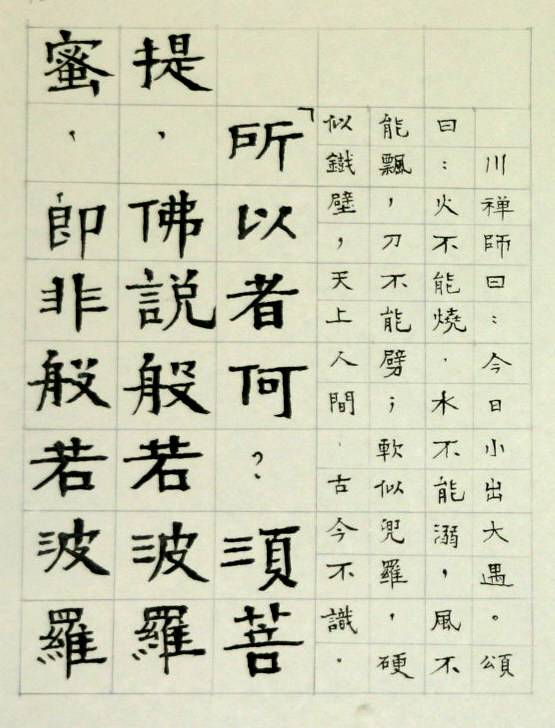 川禅師曰：今日小出大遇。頌
曰：火不能燒，水不能溺，風不
能飄，刀不能劈；軟似兜羅，硬
似鐵壁，天上人間，古今不識．
「所以者何？須菩
提，佛說般若波羅
蜜，即非般若波羅